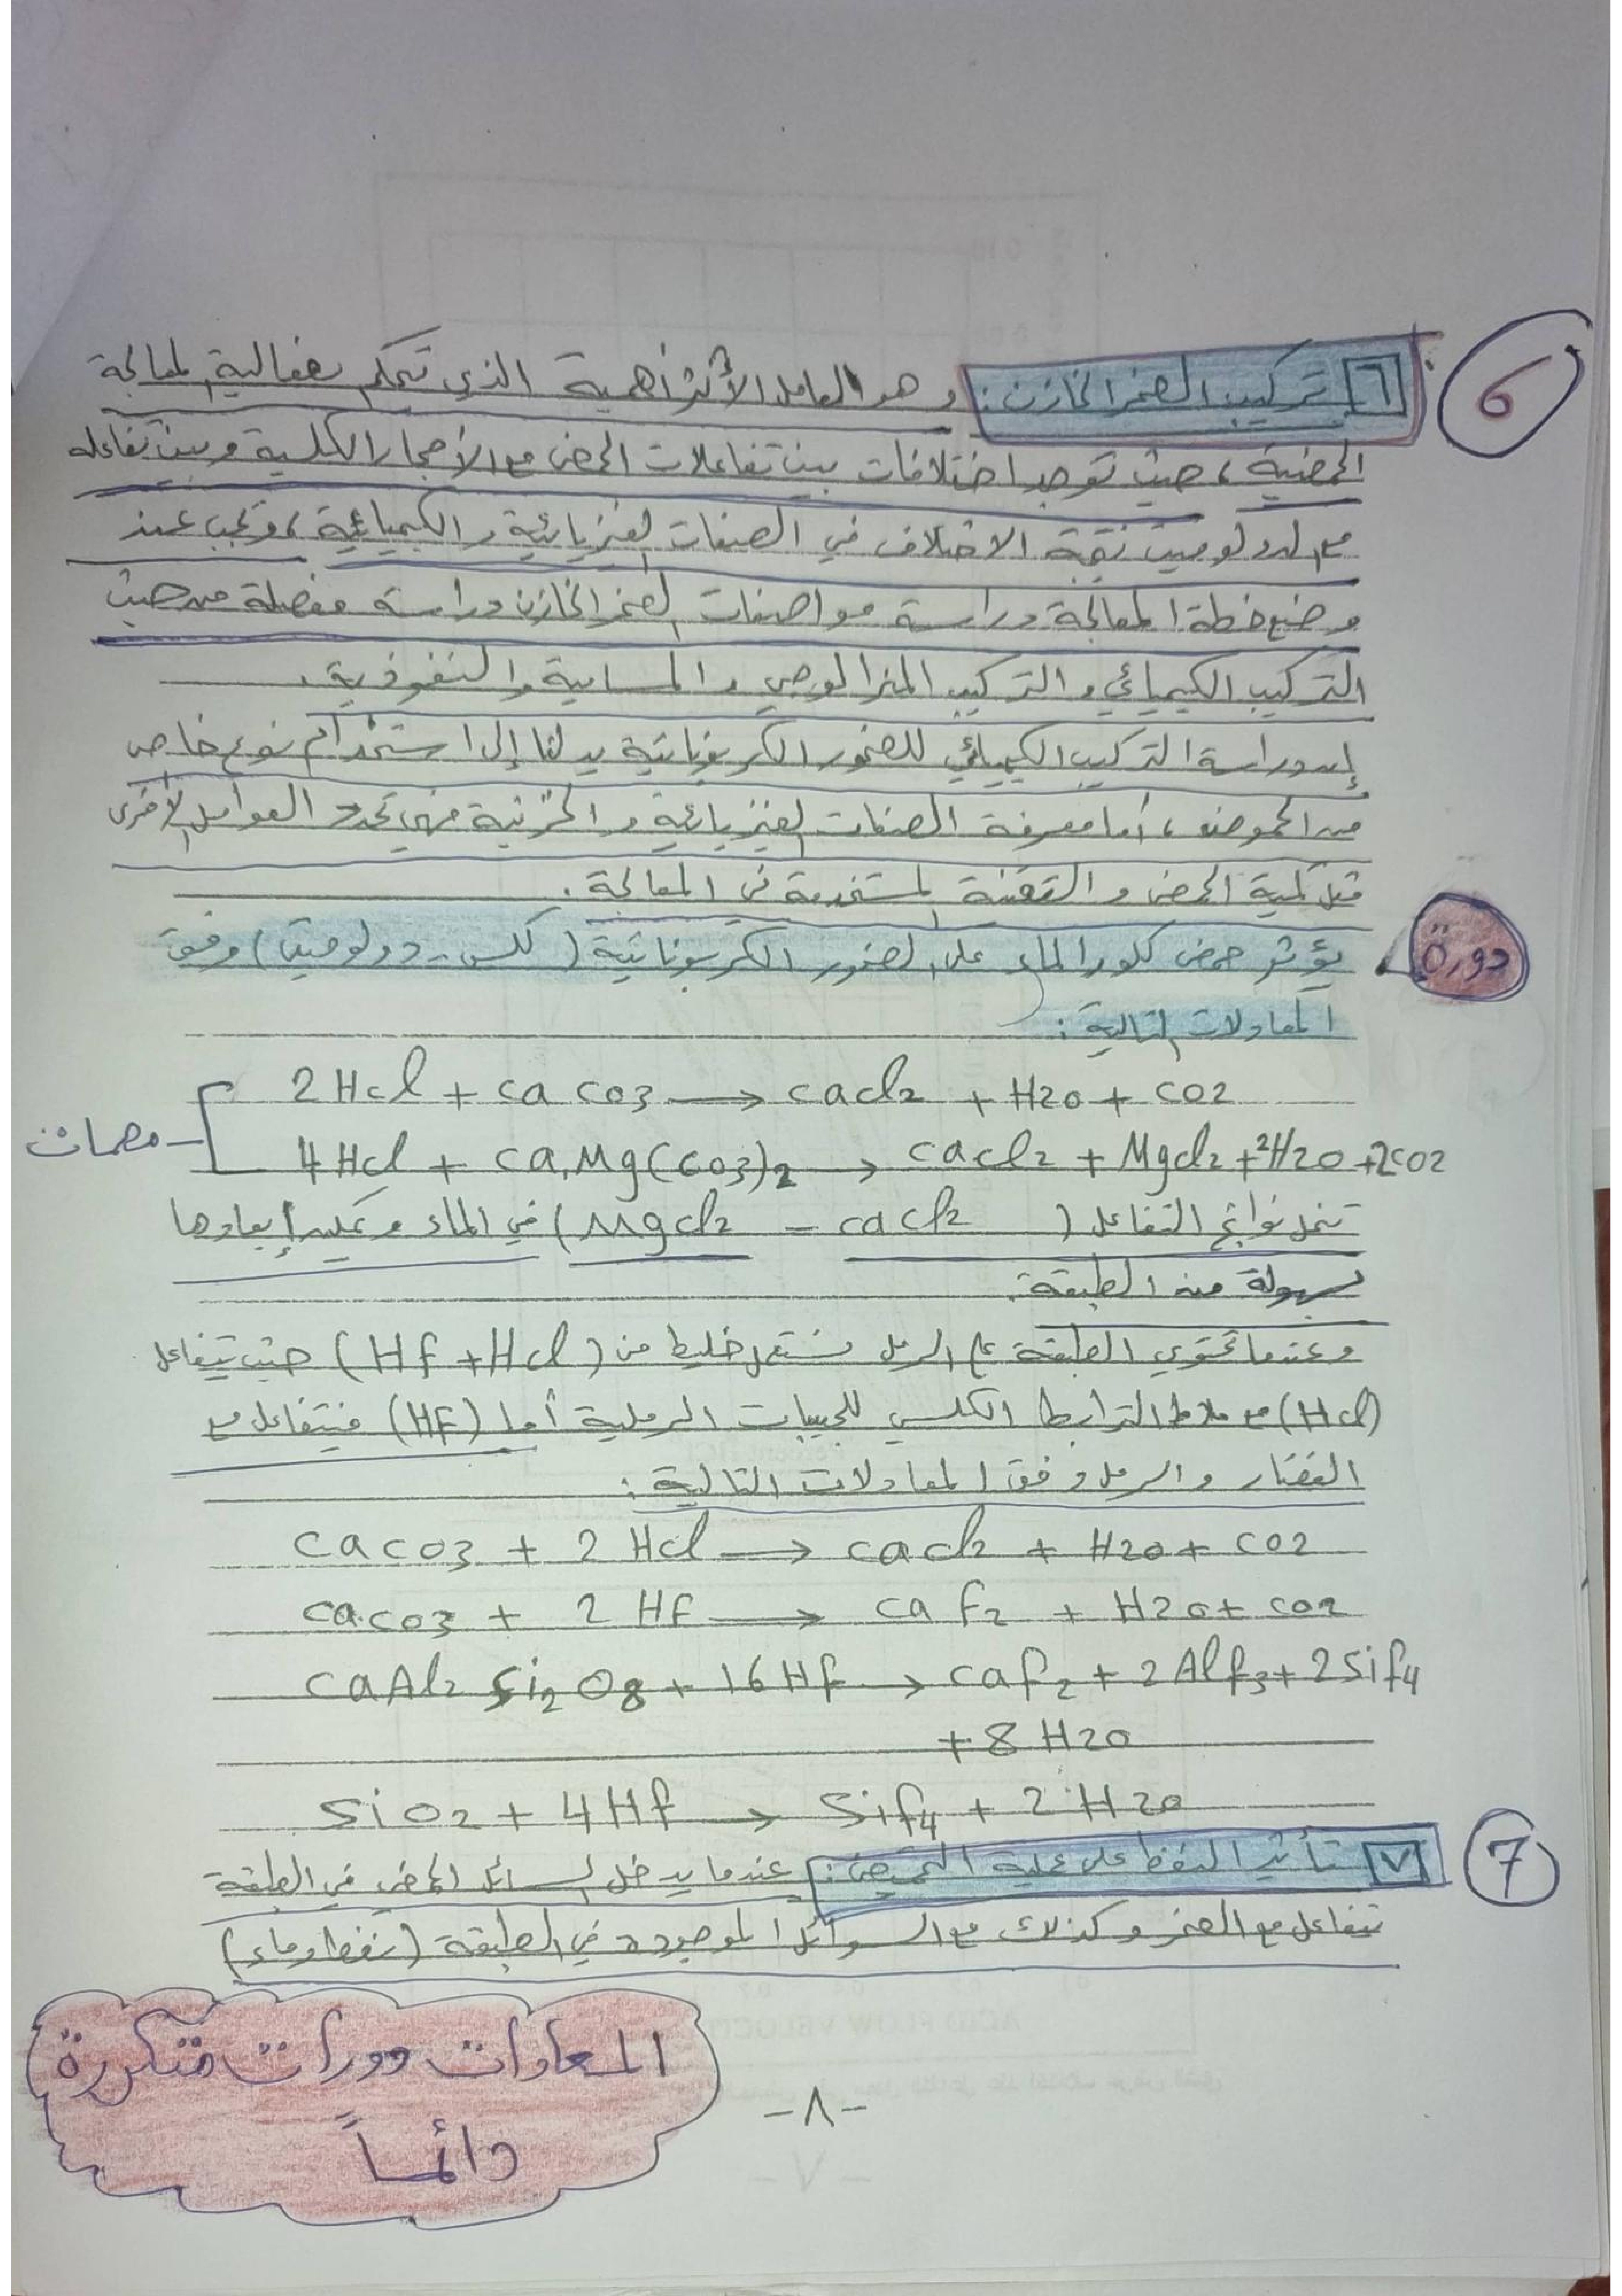 6
٦ تركيب الصخر الخازن: وهو العامل الأكثر أهمية الذي تحكم بفعالية المعالجة
الحمضية، حيث توجد اختلافات بين تفاعلات الحمض مع الأحجار الكلسية وبين تفاعله
مع الدولوميت نتيجة الاختلاف في الصفات الفيزيائية والكيميائية، وتجب عند
وضع خطة المعالجة دراسة مواصفات الصخر الخازن دراسة مفصلة من حيث
التركيب الكيميائي والتركيب المنرالوجي والمسامية والنفوذية.
إن دراسة التركيب الكيميائي للصخور الكربوناتية يدلنا إلى استخدام نوع خاص
من الحموض، أما معرفة الصفات الفيزيائية والخزنية فهي تحدد العوامل الأخرى
مثل كمية الحمض والتقنية المستخدمة في المعالجة.
دورة
يؤثر حمض كلور الماء على الصخور الكربوناتية (كلس - دولوميت) وفق
المعادلات التالية:
2Hcl + ca co3 → cacl2 + H2o + co2
مهمات
4Hcl + ca,Mg(co3)2 → cacl2 + Mgcl2 + 2H2o + 2co2
تنحل نواتج التفاعل (Mgcl2 - cacl2) في الماء ويمكن إبعادها
بسهولة من الطبقة.
وعندما تحتوي الطبقة على الرمل نستعمل خليط من (Hf + Hcl) حيث يتفاعل
(Hcl) مع ملاط الترابط الكلسي للحبيبات الرملية أما (HF) فيتفاعل مع
الغضار والرمل وفق المعادلات التالية:
caco3 + 2 Hcl → cacl2 + H2o + co2
caco3 + 2 Hf → caf2 + H2o + co2
caAl2 Si2 O8 + 16Hf → caf2 + 2Alf3 + 2Sif4
+ 8 H2o
SiO2 + 4Hf → Sif4 + 2H2o
7
٧ تأثير النفط على عملية التحميض: عندما يدخل السائل الحمضي في الطبقة
تتفاعل مع الصخر وكذلك مع السوائل الموجودة في الطبقة (نفط وماء)
المعادلات دورات متكررة
دائماً
-٨-